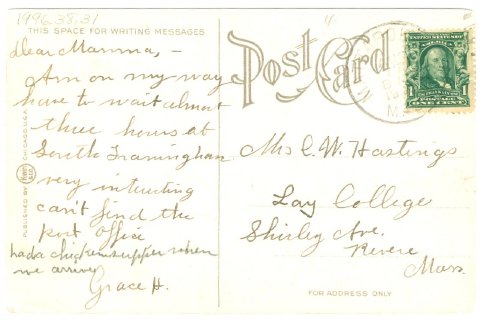 1996.38.31
THIS SPACE FOR WRITING MESSAGES
Dear Mamma, -
Am on my way
have to wait almost
three hours at
South Framingham
very interesting
can't find the
post office
had a chicken supper when
we arrive
Grace H.
PUBLISHED BY
CHICAGO, U.S.A.
Post Card
4
UNITED STATES OF AMERICA
1 1
POSTAGE
ONE CENT
Mrs C. W. Hastings
Lay College
Shirley Ave.
Revere
Mass.
FOR ADDRESS ONLY